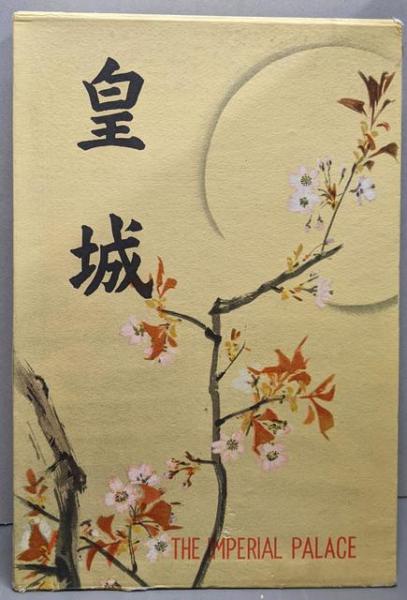 皇城
THE IMPERIAL PALACE